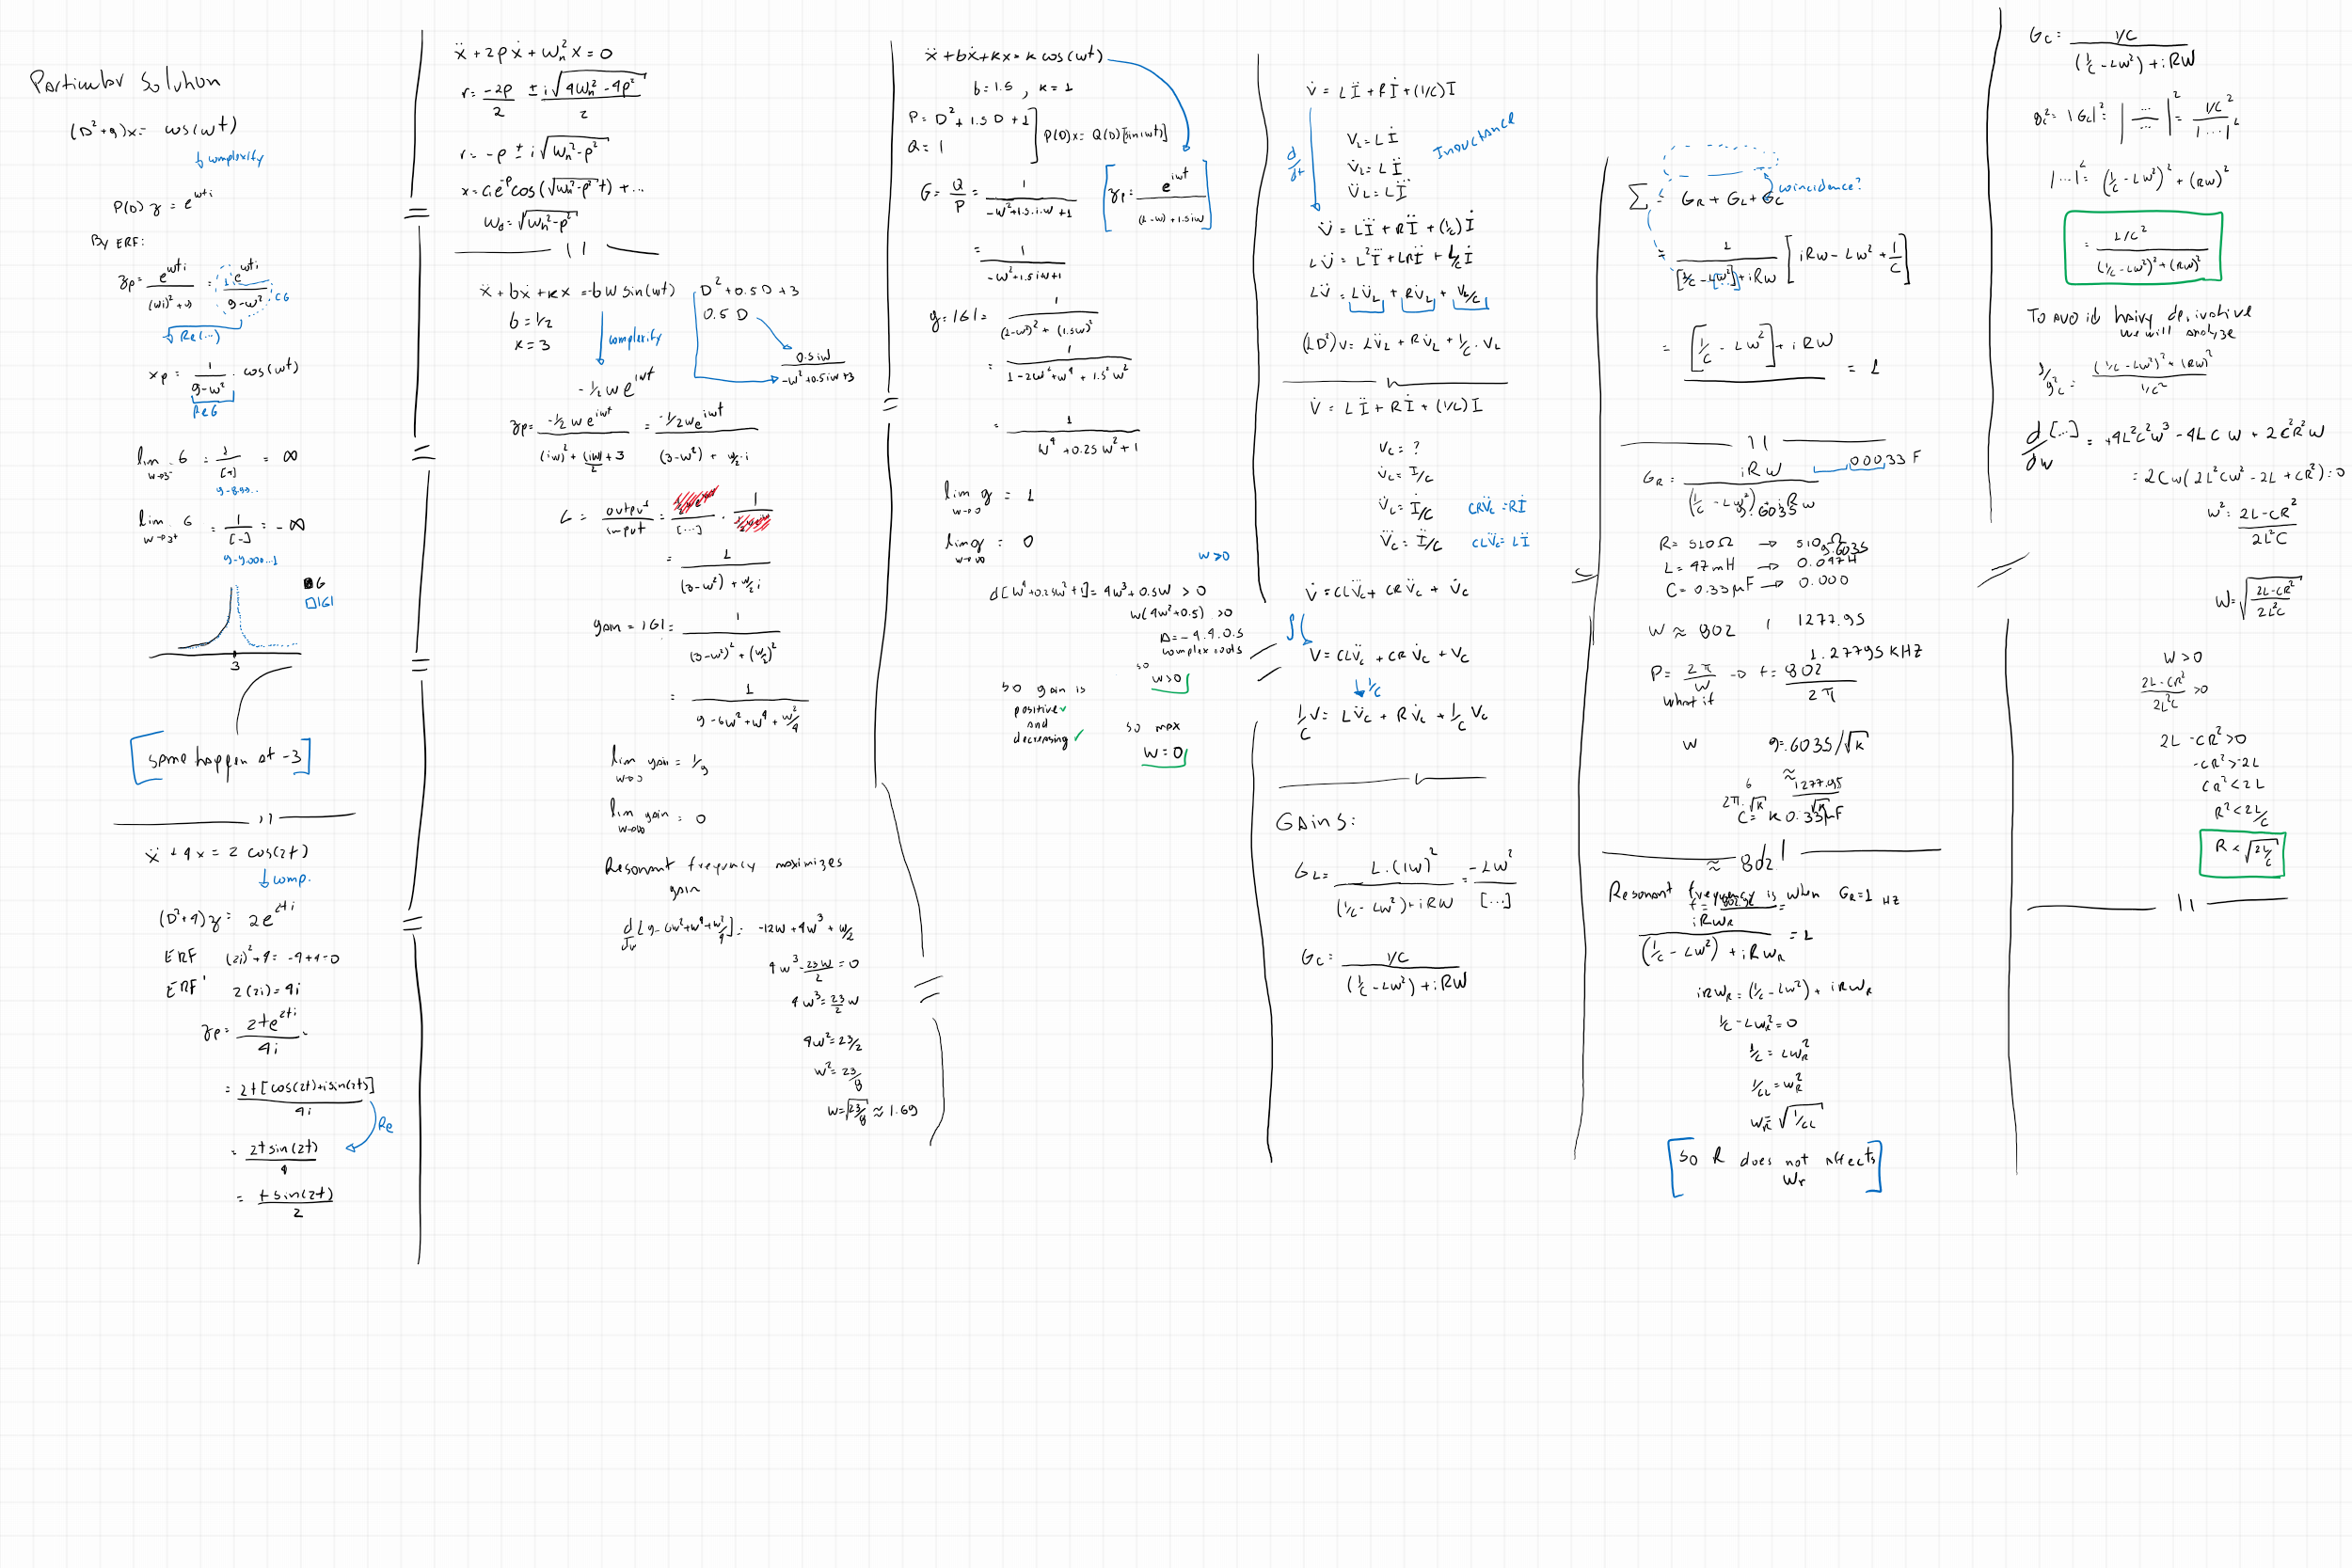 Particular Solution
(D²+9)x = cos(wt)
↓ complexity
P(D) z = e^{wti}
By ERF:
zp = e^{wti} / ((wi)²+9) = 1·e^{wti} / (9-w²)
CG
↓ Re(...)
xp = 1/(9-w²) · cos(wt)
ReG
lim w→3⁻ G = 1/[+] = ∞
9-8.99..
lim w→3⁺ G = 1/[-] = -∞
9-9.000...1
G
|G|
3
[same happen at -3]
ẍ + 4x = 2 cos(2t)
↓ comp.
(D²+4)z = 2e^{2ti}
ERF (2i)²+4 = -4+4=0
ERF' 2(2i) = 4i
zp = 2te^{2ti} / 4i
= 2t[cos(2t)+isin(2t)] / 4i
Re
= 2t sin(2t) / 4
= t sin(2t) / 2
ẍ + 2pẋ + wn² x = 0
r = -2p/2 ± i√(4wn² - 4p²) / 2
r = -p ± i√(wn²-p²)
x = c₁e^{-p} cos(√(wn²-p²) t) + ...
wd = √(wn²-p²)
ẍ + bẋ + kx = -b w sin(wt)
D² + 0.5D + 3
0.5 D
b = 1/2
k = 3
complexity
0.5iw / (-w²+0.5iw+3)
-1/2 w e^{iwt}
zp = -1/2 w e^{iwt} / ((iw)² + (iw)/2 + 3) = -1/2 w e^{iwt} / ((3-w²) + w/2 · i)
G = output/input = /[...] · 1/
= 1 / ((3-w²) + w/2 i)
gain = |G| = 1 / ((3-w²)² + (w/2)²)
= 1 / (9-6w²+w⁴+w²/4)
lim w→0 gain = 1/9
lim w→∞ gain = 0
Resonant frequency maximizes
gain
d/dw [9-6w²+w⁴+w²/4] = -12w + 4w³ + w/2
4w³ - 23w/2 = 0
4w³ = 23/2 w
4w² = 23/2
w² = 23/8
w = √(23/8) ≈ 1.69
ẍ + bẋ + kx = k cos(wt)
b = 1.5 , k = 1
P = D² + 1.5 D + 1
Q = 1
P(D)x = Q(D)[sin(wt)]
G = Q/P = 1 / (-w²+1.5.i.w+1)
[zp = e^{iwt} / ((1-w) + 1.5iw)]
= 1 / (-w²+1.5iw+1)
g = |G| = 1 / ((1-w²)² + (1.5w)²)
= 1 / (1-2w²+w⁴ + 1.5² w²)
= 1 / (w⁴ + 0.25 w² + 1)
lim w→0 g = 1
lim w→∞ g = 0
w>0
d[w⁴+0.25w²+1] = 4w³ + 0.5w > 0
w(4w²+0.5) > 0
Δ = -4.4.0.5
complex roots
so
w>0
so gain is
positive ✓
and
decreasing ✓
so max
w = 0
V̇ = LÏ + Rİ + (1/C)I
d/dt
V_L = Lİ
V̇_L = LÏ
V̈_L = LI⃛
Inductance
V̈ = LI⃛ + RÏ + (1/C)İ
LV̈ = L²I⃛ + LRÏ + L/C İ
LV̈ = LV̈_L + RV̇_L + V_L/C
(LD²)V = LV̈_L + RV̇_L + 1/C · V_L
V̇ = LÏ + Rİ + (1/C)I
V_C = ?
V̇_C = I/C
V̈_C = İ/C CRV̈_C = Rİ
V⃛_C = Ï/C CLV⃛_C = LÏ
V̇ = CLV⃛_C + CRV̈_C + V̇_C
∫
V = CLV̈_C + CRV̇_C + V_C
↓ 1/C
1/C V = LV̈_C + RV̇_C + 1/C V_C
GAINS:
G_L = L.(iw)² / ((1/C - Lw²)+iRw) = -Lw² / [...]
G_C = 1/C / ((1/C - Lw²)+iRw)
∑ = G_R + G_L + G_C
coincidence?
= 1 / ([1/C - Lw²]+iRw) [iRw - Lw² + 1/C]
= [1/C - Lw²] + iRw
= 1
G_R = iRw / ((1/C - Lw²) + iRw)
000,33 F
9.6035
R = 510Ω → 510Ω
9.6035
L = 47mH → 0.047H
C = 0.33μF → 0.000
w ≈ 802 , 1277.95
1.27795 KHZ
P = 2π/w → f = 802/2π
What if
w 9.6035/√k
≈ 1277.95/√k
2π.√k
C = k 0.33μF
≈ 802
Resonant frequency is when G_R=1 HZ
iRw_R / ((1/C - Lw²) + iRw_R) = 1
iRw_R = (1/C - Lw²) + iRw_R
1/C - Lw_R² = 0
1/C = Lw_R²
1/CL = w_R²
w_R = √(1/CL)
[So R does not affects
wr]
G_C = 1/C / ((1/C - Lw²)+iRw)
g_C² = |G_C|² = |.../...|² = 1/C² / |...|²
|...|² = (1/C - Lw²)² + (Rw)²
= 1/C² / ((1/C - Lw²)²+(Rw)²)
To avoid hairy derivative
we will analyze
1/g_C² = ((1/C - Lw²)² + (Rw)²) / 1/C²
d/dw [...] = +4L²C²w³ - 4LCw + 2C²R²w
= 2Cw(2L²Cw² - 2L + CR²) = 0
w² = (2L-CR²) / 2L²C
w = √((2L-CR²) / 2L²C)
w>0
(2L-CR²) / 2L²C > 0
2L - CR² > 0
-CR² > -2L
CR² < 2L
R² < 2L/C
R < √(2L/C)